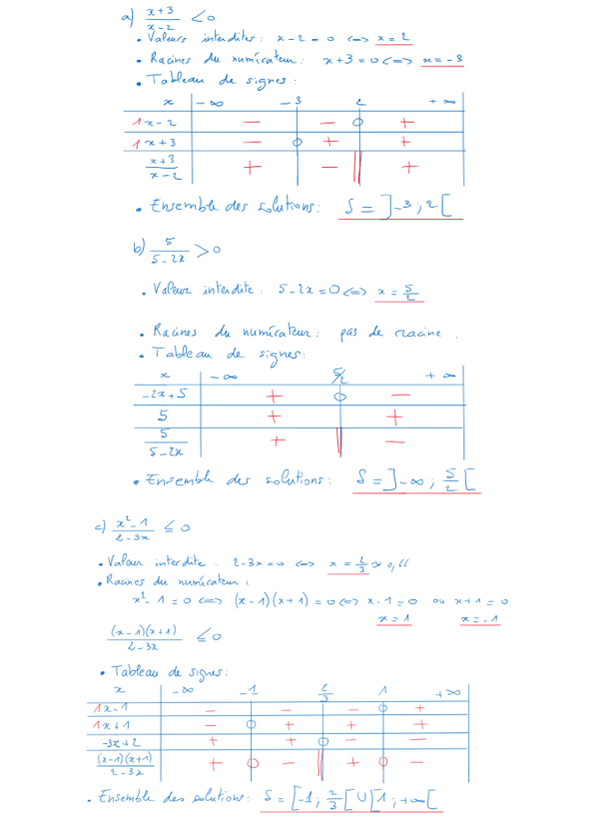 a) x+3/x-2 <0
• Valeurs interdites: x-2=0 <=> x=2
• Racines du numérateur: x+3=0 <=> x=-3
• Tableau de signes:
x -∞ -3 2 +∞
1x-2 - - 0 +
1x+3 - 0 + +
x+3/x-2 + - || +
• Ensemble des solutions: S = ]-3,2[
b) 5/5-2x >0
• Valeur interdite: 5-2x=0 <=> x=5/2
• Racines du numérateur: pas de racine.
• Tableau de signes:
x -∞ 5/2 +∞
-2x+5 + 0 -
5 + +
5/5-2x + || -
• Ensemble des solutions: S = ]-∞; 5/2[
c) x²-1/2-3x ≤ 0
• Valeur interdite: 2-3x=0 <=> x=2/3 ≈ 0,66
• Racines du numérateur:
x²-1=0 <=> (x-1)(x+1)=0 <=> x-1=0 ou x+1=0
x=1 x=-1
(x-1)(x+1)/2-3x ≤ 0
• Tableau de signes:
x -∞ -1 2/3 1 +∞
1x-1 - - - 0 +
1x+1 - 0 + + +
-3x+2 + + 0 - -
(x-1)(x+1)/2-3x + 0 - || + 0 -
• Ensemble des solutions: S = [-1; 2/3[ U [1; +∞[